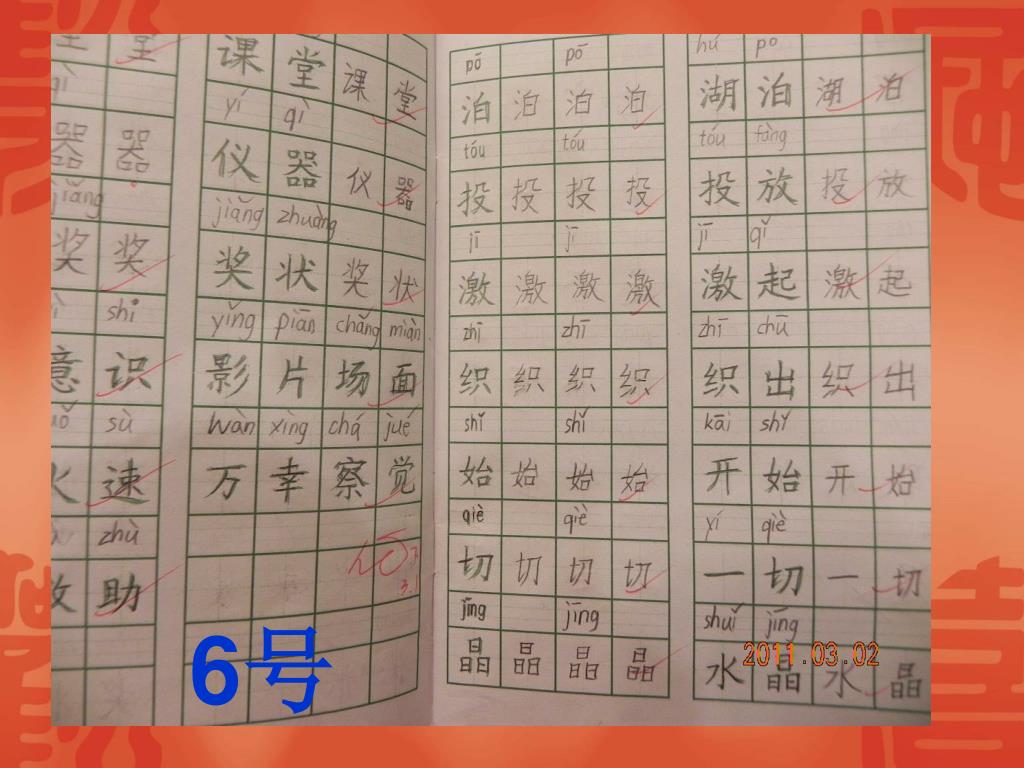 堂
qì
器 器
jiǎng
奖 奖
shi
意 识
sù
火 速
zhù
助
课 堂 课 堂
yí qì
仪 器 仪 器
jiǎng zhuàng
奖 状 奖 状
yǐng piān chǎng miàn
影 片 场 面
wàn xìng chá jué
万 幸 察 觉
6号
pō pō
泊 泊 泊 泊
tóu tóu
投 投 投 投
jī jī
激 激 激 激
zhī zhī
织 织 织 织
shǐ shǐ
始 始 始 始
qiè qiè
切 切 切 切
jīng jīng
晶 晶 晶 晶
hú pō
湖 泊 湖 泊
tóu fàng
投 放 投 放
jī qǐ
激 起 激 起
zhī chū
织 出 织 出
kāi shǐ
开 始 开 始
yí qiè
一 切 一 切
shuǐ jīng
水 晶 水 晶
2011.03.02